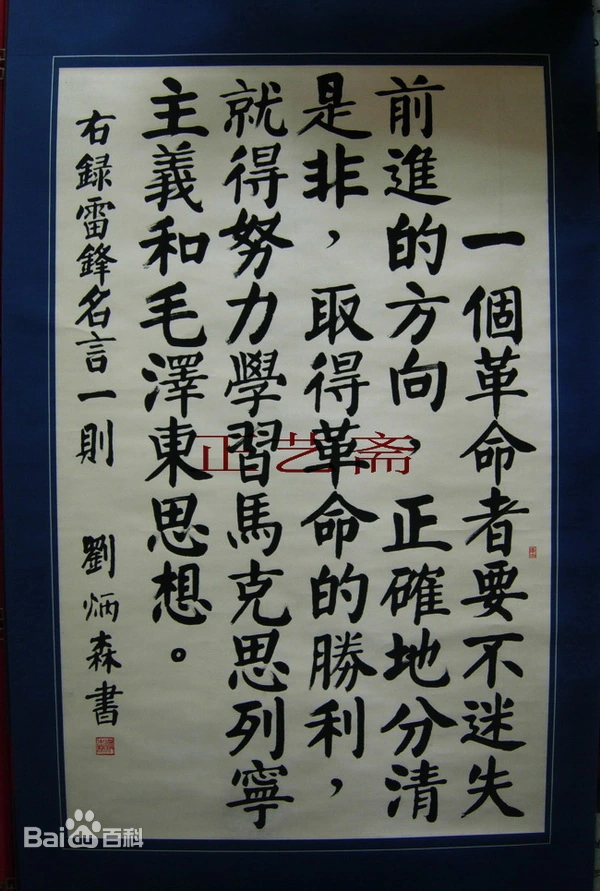 一個革命者要不迷失
前進的方向，正確地分清
是非，取得革命的勝利，
就得努力學習馬克思列寧
主義和毛澤東思想。
右録雷鋒名言一則
劉炳森書
正艺斋
Bai du 百科